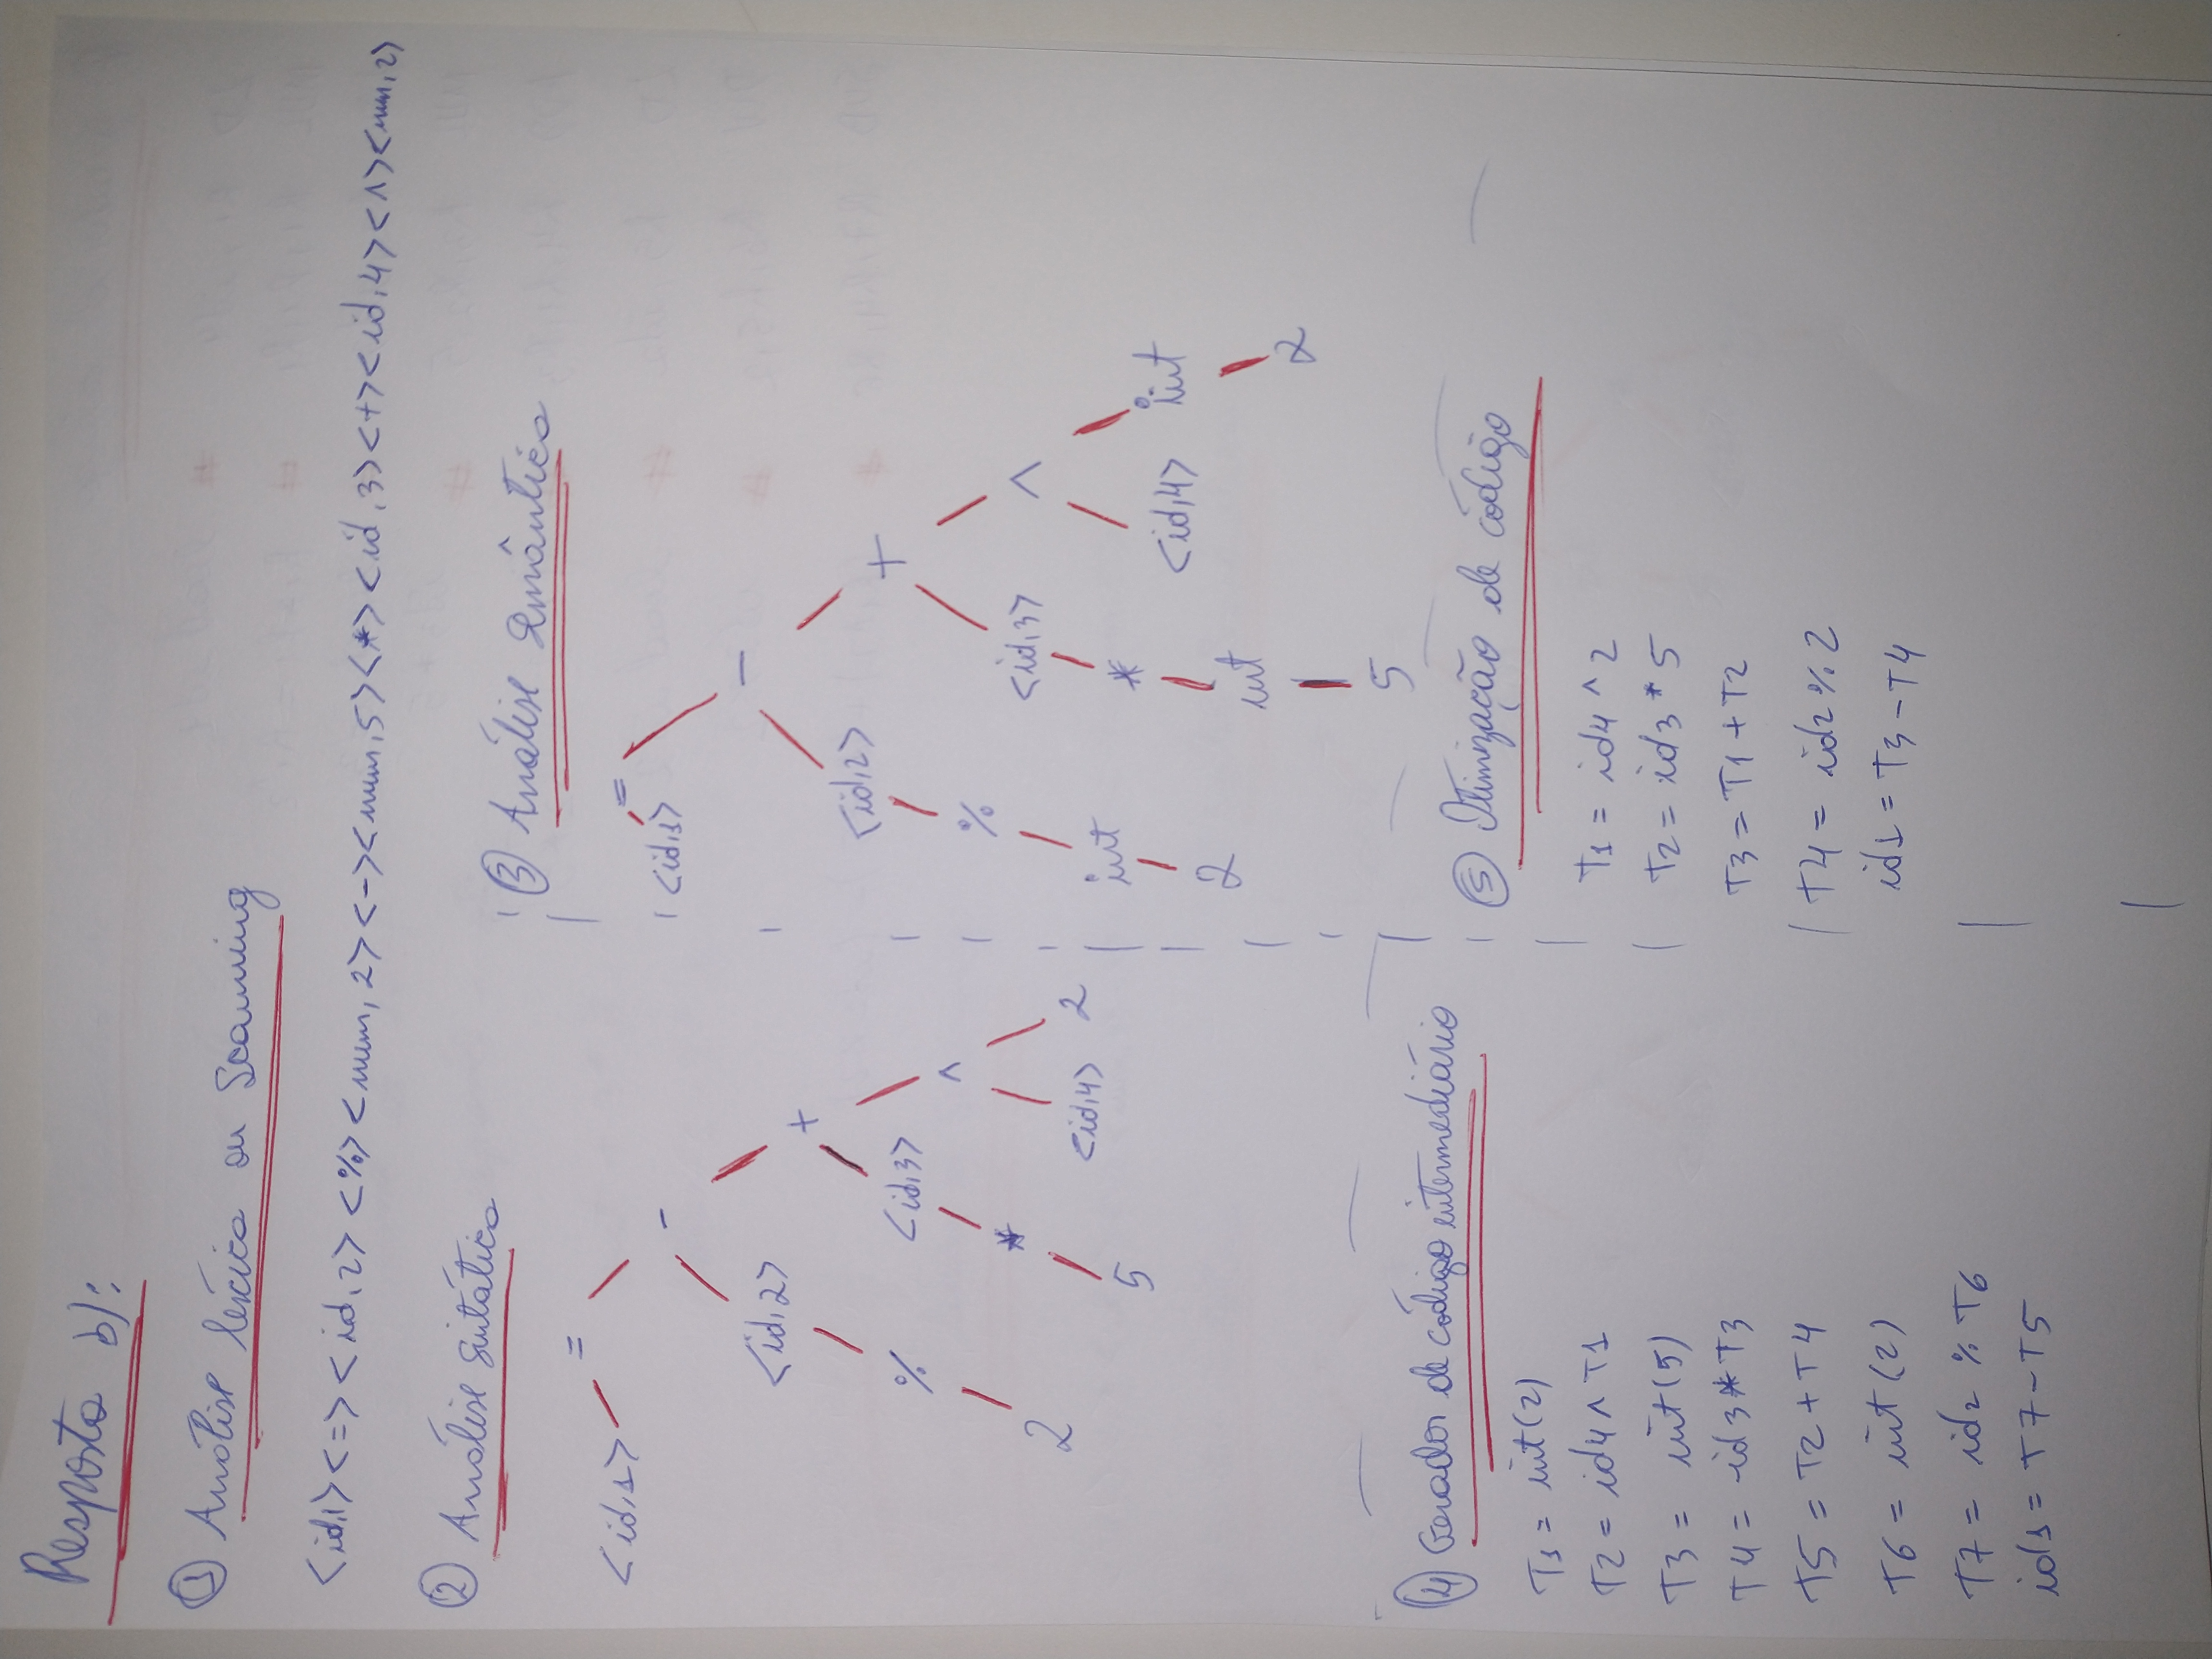 Resposta b):
① Análise léxica ou Scanning
<id,1><=><id,2><%><num,2><-><num,5><*><id,3><+><id,4><^><num,2>
② Análise Sintática
=
<id,1>
-
<id,2>
+
%
<id,3>
^
2
*
<id,4>
2
5
③ Análise Semântica
=
<id,1>
-
<id,2>
+
%
<id,3>
^
int
*
<id,4>
int
2
int
2
5
④ Gerador de código intermediário
T1 = int(2)
T2 = id4 ^ T1
T3 = int(5)
T4 = id3 * T3
T5 = T2 + T4
T6 = int(2)
T7 = id2 % T6
id1 = T7 - T5
⑤ Otimização de código
T1 = id4 ^ 2
T2 = id3 * 5
T3 = T1 + T2
T4 = id2 % 2
id1 = T3 - T4